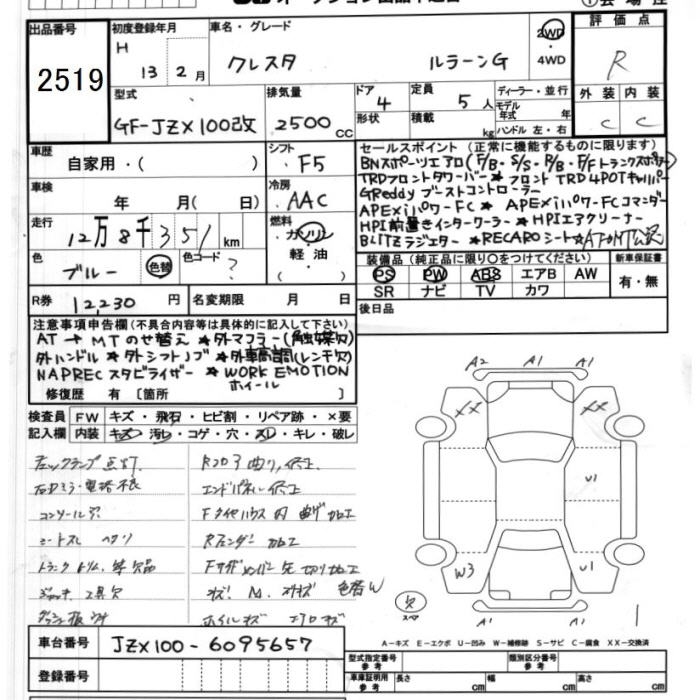 出品番号
2519
初度登録年月
H
13年 2月
車名・グレード
クレスタ ルラーンG
2WD
・
4WD
評価点
R
外装 内装
C C
型式
GF-JZX100改
排気量
2500 CC
ドア
4
形状
定員
5 人
積載
kg
ディーラー・並行
モデル
年式 年
ハンドル 左・右
車歴
自家用・( )
シフト
F5
車検
年 月( 日)
冷房
AAC
走行
12万8千351km
燃料
ガソリン
軽油
・( )
色
ブルー 色替
色コード ?
R券
12,230円
名変期限 月 日
セールスポイント (正常に機能するものに限ります)
BNスポーツエアロ(F/B・S/S・R/B・F/Fトランクスポイラー)
TRDフロントタワーバー★フロント TRD 4POTキャリパー
GReddy ブーストコントローラー
APEXiパワーFC ★ APEXiパワーFCコマンダー
HPI前置きインタークーラー ★HPIエアクリーナー
BLITZラジエター ★RECAROシート★AT→MT公認
装備品 (純正品に限り○をつけてください)
PS PW ABS エアB AW
SR ナビ TV カワ
新車保証書
有・無
後日品
注意事項申告欄 (不具合内容等は具体的に記入して下さい)
AT→MTのせ替え ★外マフラー(触媒欠)
外ハンドル ★外シフトノブ ★外車高調(レンチ欠)
NAPRECスタビライザー ★WORK EMOTION
ホイール
修復歴 有 [箇所 ]
検査員 FW キズ・飛石・ヒビ割・リペア跡・×要
記入欄 内装 キズ・汚レ・コゲ・穴・スレ・キレ・破レ
コンソール穴
シートスレ ヘタリ
ジャッキ、工具欠
エンドパネル修正
Rフェンダー加工
色替W
ホイルキズ エアロキズ
A2 A1 A1
XX XX
U1
W3 U1
欠
スペア
A1 A1
1
A－キズ E－エクボ U－凹み W－補修跡 S－サビ C－腐食 XX－交換済
車台番号 JZX100-6095657
登録番号
型式指定番号
参考
類別区分番号
参考
車庫証明用
参考
長さ cm
幅 cm
高さ cm